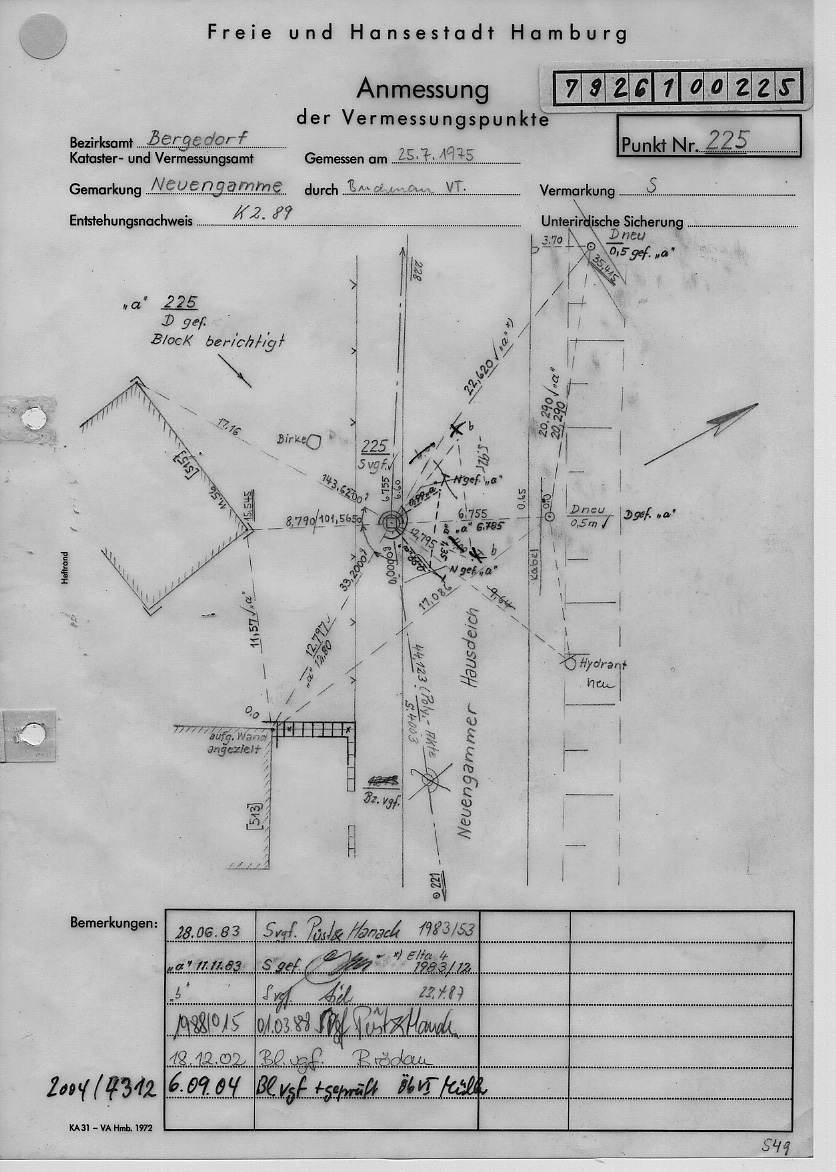 Freie und Hansestadt Hamburg
7926100225
Anmessung
der Vermessungspunkte
Punkt Nr. 225
Bezirksamt Bergedorf
Kataster- und Vermessungsamt
Gemessen am 25.7.1975
Gemarkung Neuengamme
durch VT.
Vermarkung S
Entstehungsnachweis K2.89
Unterirdische Sicherung
3.70
D neu
0,5 gef. „a"
35,415
228
„a" 225
D gef.
Block berichtigt
22,620 √ „a" *)
20,290 √ „a"
20,290
17.16
Birke
225
S vgf.
b
[515]
11,56
143,6200
6.755
6.60
N gef „a"
15.545
8,790/101,5650
6.755
„a" 6.785
0.65
0,0
D neu
0,5m √
D gef. „a"
12,795
1,35
b
N gef. „a"
Kabel
Heftrand
33,2000
0,0000
17.086
9,64
11,57 √ „a"
12.797 √
„a" 12.80
Hydrant
neu
44,123 (Poly.-
5.4003
Neuengammer Hausdeich
0,0
aufg. Wand
angezielt
[513]
Bz. vgf.
221
Bemerkungen:
28.06.83 Svgf. Püst & Hanack 1983/53
„a" 11.11.83 S gef. *) Elta 4
1983/12
„b" Svgf 23.4.87
1988/015 01.03.88 Svgf Püst & Hanack
18.12.02 Bl. vgf. Rrödau
2004/4312 6.09.04 Bl vgf + geprüft ÖbVI
KA 31 – VA Hmb. 1972
S49